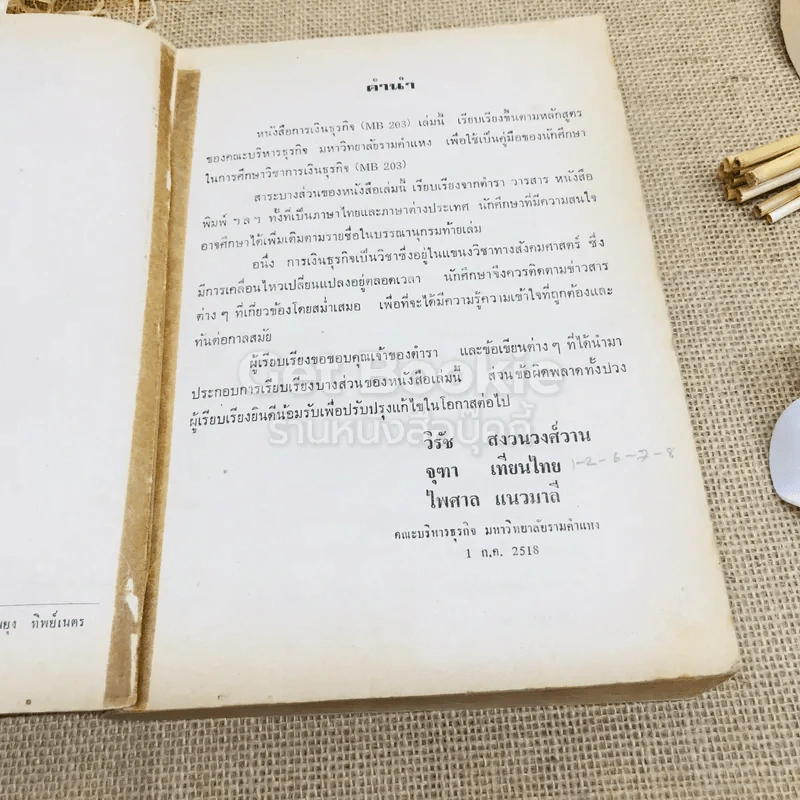 คำนำ
หนังสือการเงินธุรกิจ (MB 203) เล่มนี้ เรียบเรียงขึ้นตามหลักสูตร
ของคณะบริหารธุรกิจ มหาวิทยาลัยรามคำแหง เพื่อใช้เป็นคู่มือของนักศึกษา
ในการศึกษาวิชาการเงินธุรกิจ (MB 203)
สาระบางส่วนของหนังสือเล่มนี้ เรียบเรียงจากตำรา วารสาร หนังสือ
พิมพ์ ฯลฯ ทั้งที่เป็นภาษาไทยและภาษาต่างประเทศ นักศึกษาที่มีความสนใจ
อาจศึกษาได้เพิ่มเติมตามรายชื่อในบรรณานุกรมท้ายเล่ม
อนึ่ง การเงินธุรกิจเป็นวิชาซึ่งอยู่ในแขนงวิชาทางสังคมศาสตร์ ซึ่ง
มีการเคลื่อนไหวเปลี่ยนแปลงอยู่ตลอดเวลา นักศึกษาจึงควรติดตามข่าวสาร
ต่าง ๆ ที่เกี่ยวข้องโดยสม่ำเสมอ เพื่อที่จะได้มีความรู้ความเข้าใจที่ถูกต้องและ
ทันต่อกาลสมัย
ผู้เรียบเรียงขอขอบคุณเจ้าของตำรา และข้อเขียนต่าง ๆ ที่ได้นำมา
ประกอบการเรียบเรียงบางส่วนของหนังสือเล่มนี้ ส่วนข้อผิดพลาดทั้งปวง
ผู้เรียบเรียงยินดีน้อมรับเพื่อปรับปรุงแก้ไขในโอกาสต่อไป
Get Bookie
ร้านหนังสือบุ๊คกี้
วิรัช สงวนวงศ์วาน
จุฑา เทียนไทย 1-2-6-7-8
ไพศาล แนวมาลี
คณะบริหารธุรกิจ มหาวิทยาลัยรามคำแหง
1 ก.ค. 2518
ทิพย์เนตร